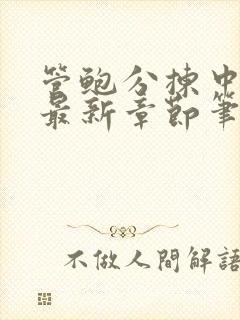 管鲍分拣中
最新章節筆
不做人間解語